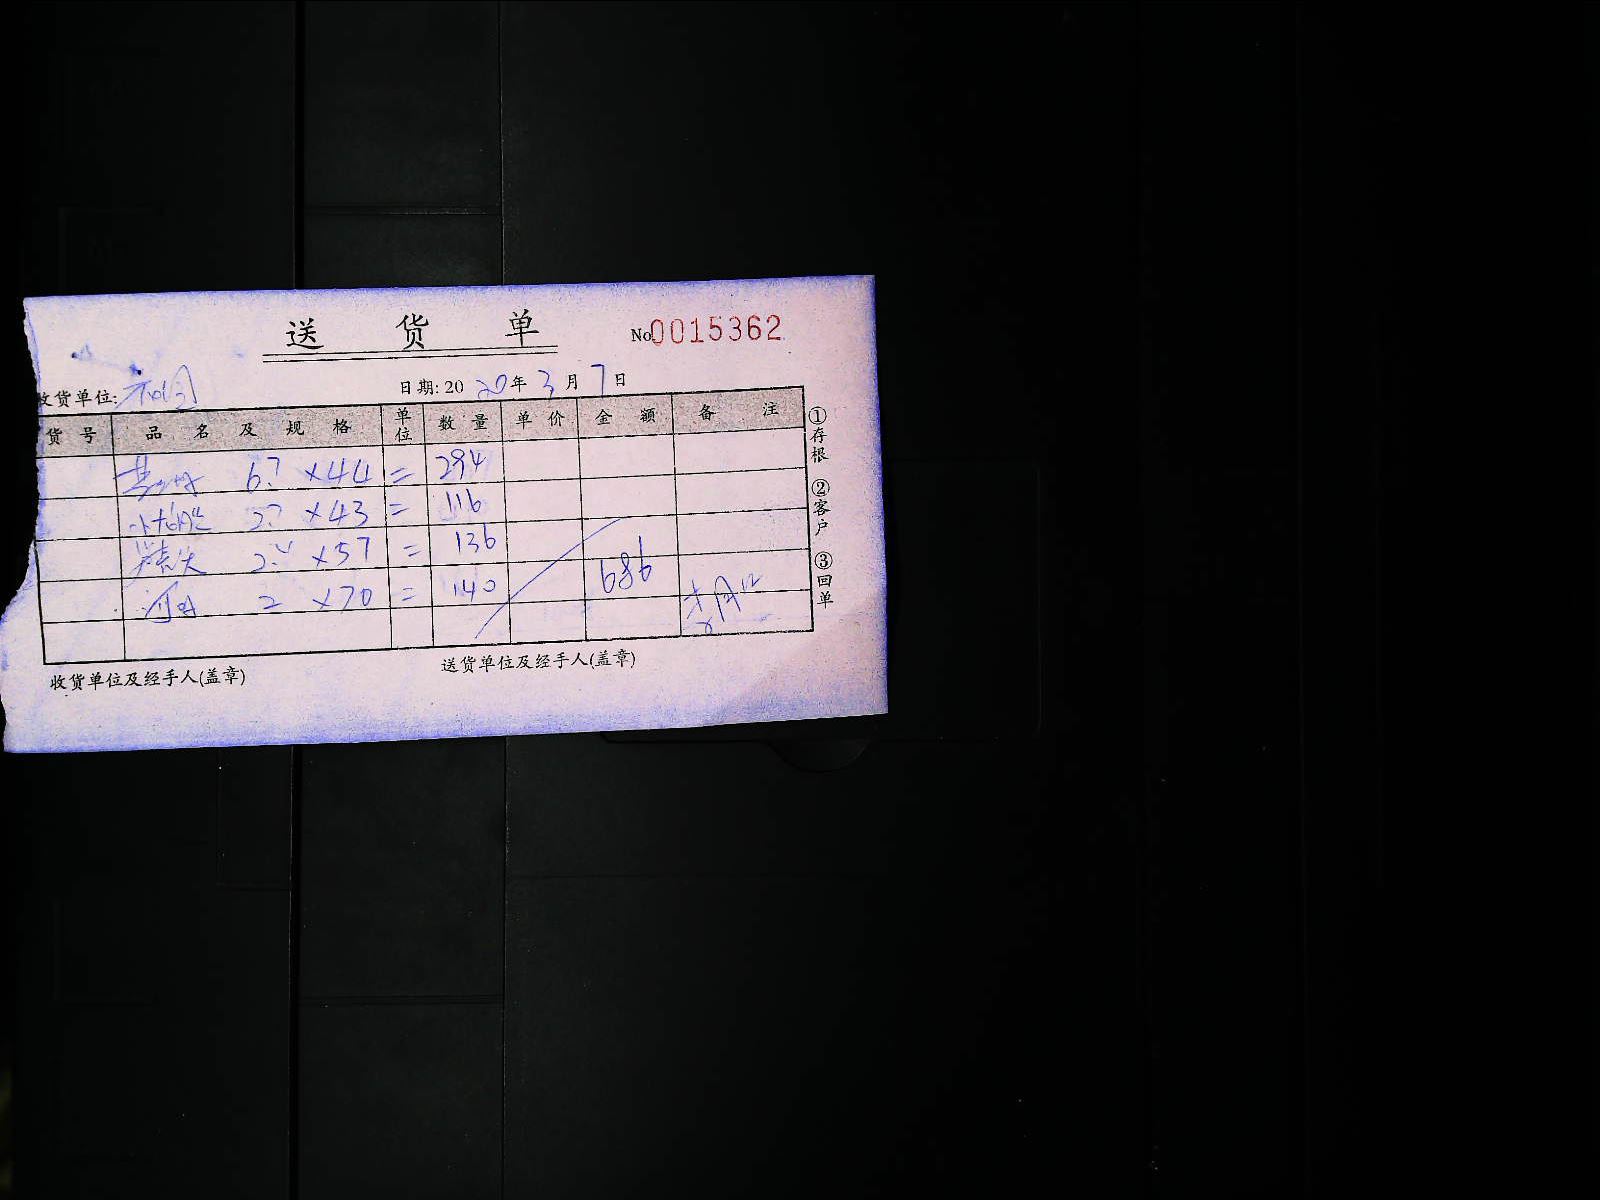 送货单 No.0015362
收货单位: 日期: 2020年3月7日
货号 品名及规格 单位 数量 单价 金额 备注
6.7 ×44 = 294
2.7 ×43 = 116
2.4 ×57 = 136
2 ×70 = 140
686
收货单位及经手人(盖章) 送货单位及经手人(盖章)
①存根 ②客户 ③回单